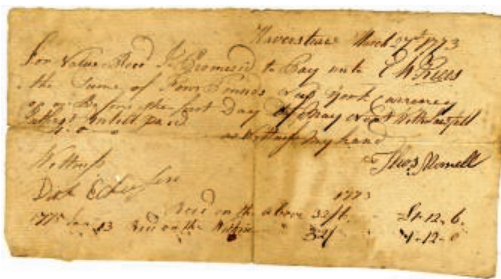 Haverstraw March 27th 1773
For Value Recd I Promised to Pay unto
the Sume of Four Pounds New York Currency
on or Before the first Day of May Next With Lawfull
Intrest Untill paid
as Witness my hand
Witness
Thos Morrell
1773
Recd on the above 32/6 £1-12-6
1775 Jan 13 Recd on the Within 32/ 1-12-0